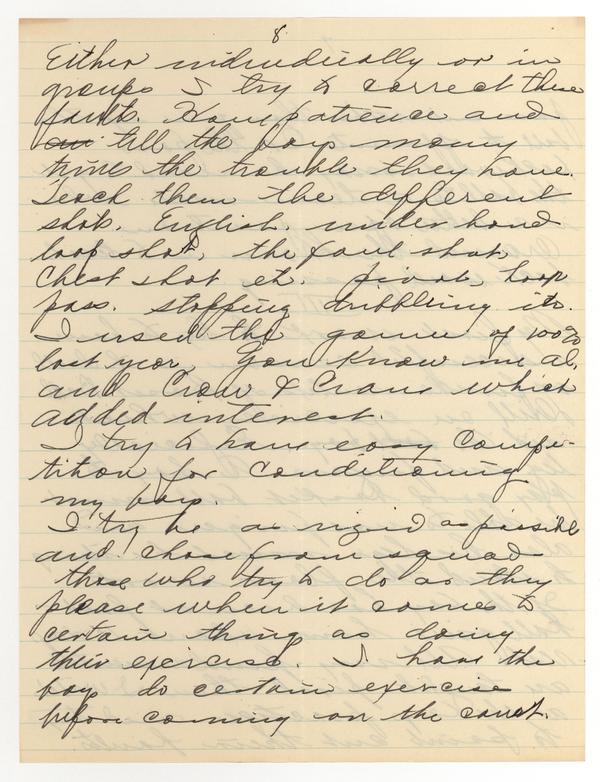 8
Either individually or in
groups I try to correct these
faults. Have patience and
tell the boys many
times the trouble they have.
Teach them the different
shots. English, under hand
loop shot, the foul shot,
chest shot etc. pivots, hoop
pass. stopping dribbling etc.
I used the game of 100%
last year, You Know me al,
and Crow & Crane which
added interest.
I try to have easy compe-
tition for conditioning
my boys.
I try be as rigid as possible
and chase from squad
those who try to do as they
please when it comes to
certain things as doing
their exercise. I have the
boys do certain exercise
before coming on the court.